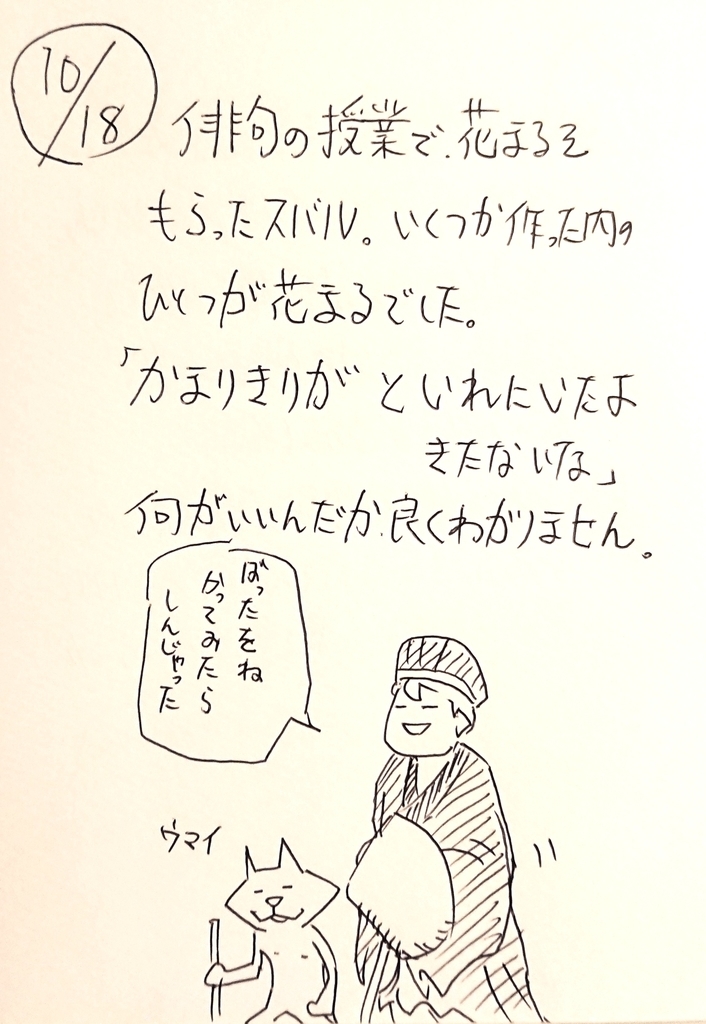 10/18
俳句の授業で、花まるを
もらったスバル。いくつか作った内の
ひとつが花まるでした。
「かまりきりが といれにいたよ
きたないな」
何がいいんだか良くわかりません。
ばったをね
かってみたら
しんじゃった
ウマイ